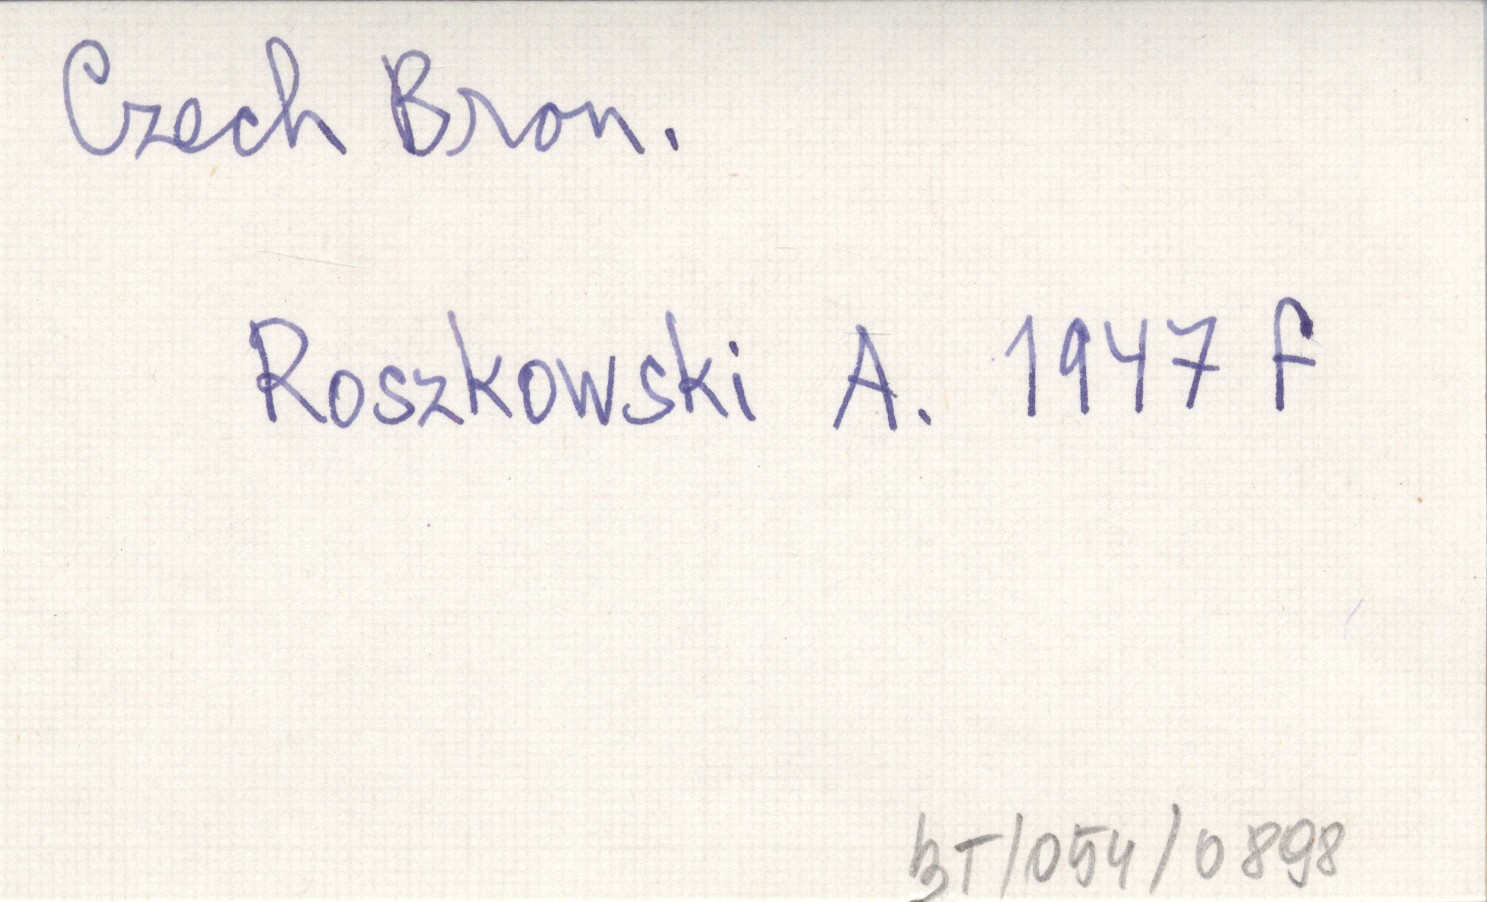 Czech Bron.
Roszkowski A. 1947 F
BT/054/0898